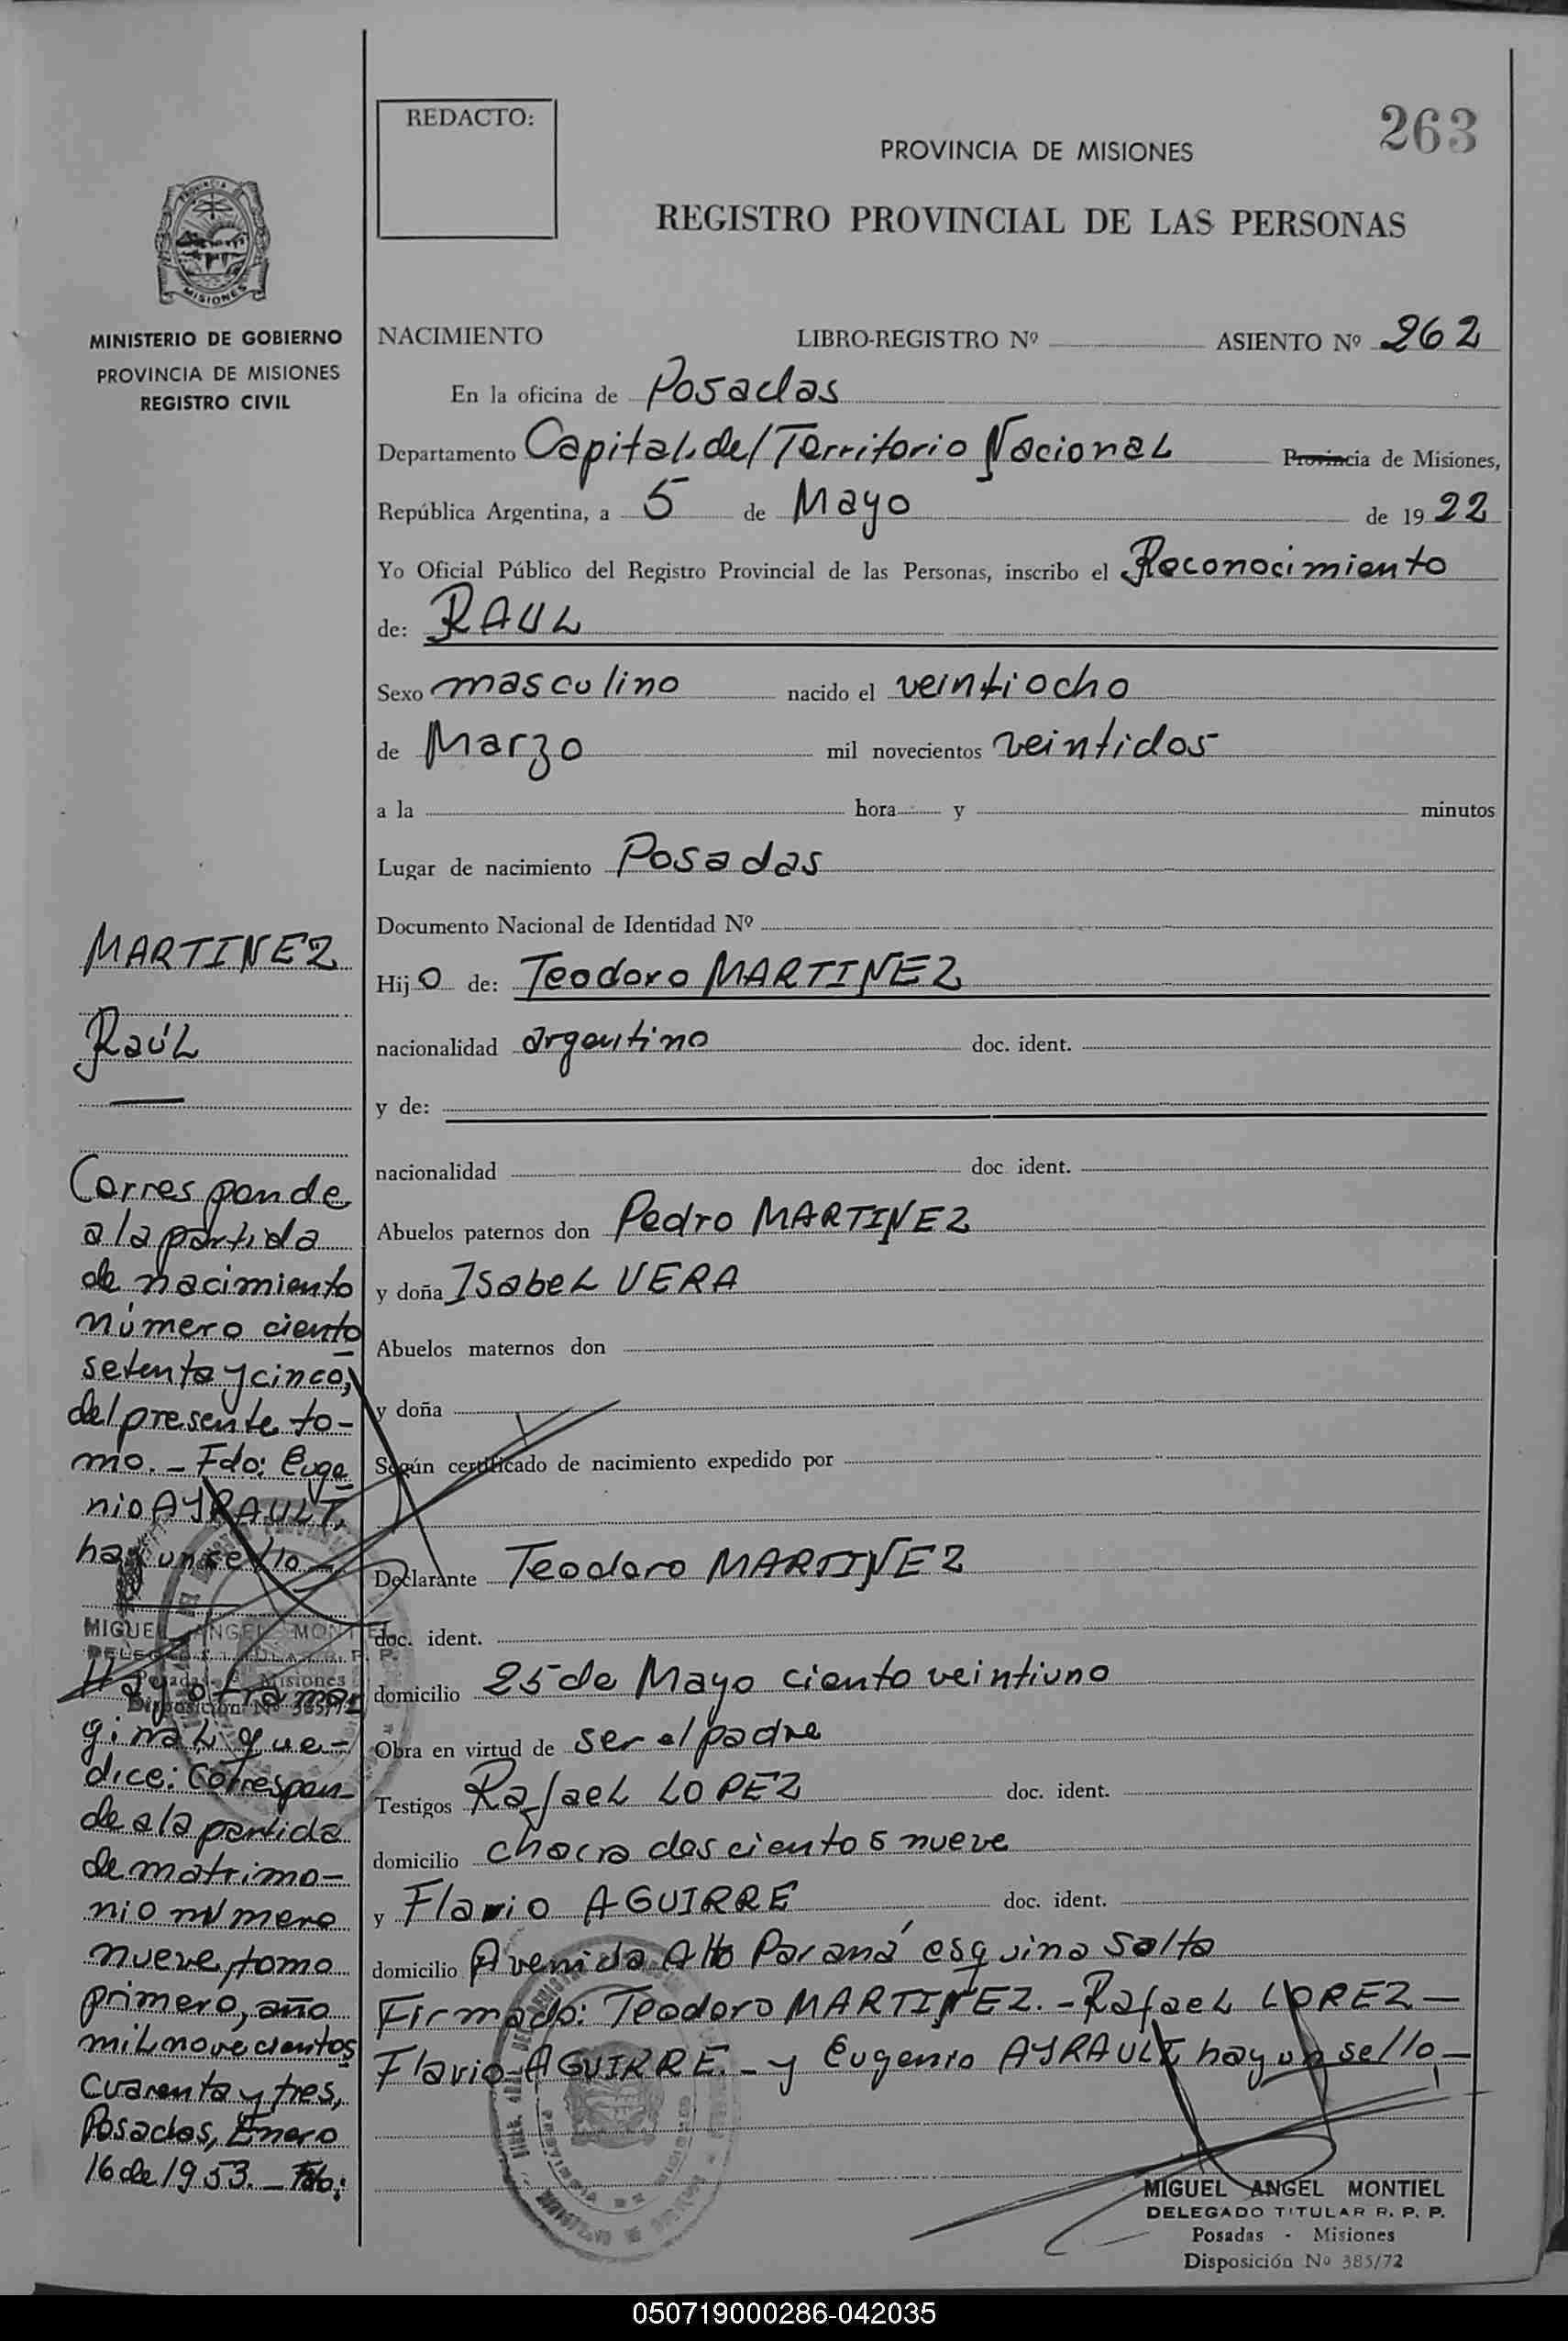 REDACTO:
263
PROVINCIA DE MISIONES
REGISTRO PROVINCIAL DE LAS PERSONAS
MISIONES
MINISTERIO DE GOBIERNO
PROVINCIA DE MISIONES
REGISTRO CIVIL
NACIMIENTO LIBRO-REGISTRO Nº ASIENTO Nº 262
En la oficina de Posadas
Departamento Capital del Territorio Nacional Provincia de Misiones,
República Argentina, a 5 de Mayo de 1922
Yo Oficial Público del Registro Provincial de las Personas, inscribo el Reconocimiento
de: RAUL
Sexo masculino nacido el veintiocho
de Marzo mil novecientos veintidos
a la hora y minutos
Lugar de nacimiento Posadas
Documento Nacional de Identidad Nº
Hijo de: Teodoro MARTINEZ
nacionalidad argentino doc. ident.
y de:
nacionalidad doc ident.
Abuelos paternos don Pedro MARTINEZ
y doña Isabel VERA
Abuelos maternos don
y doña
Según certificado de nacimiento expedido por
Declarante Teodoro MARTINEZ
doc. ident.
domicilio 25 de Mayo ciento veintiuno
Obra en virtud de ser el padre
Testigos Rafael LOPEZ doc. ident.
domicilio chacra doscientos nueve
y Flavio AGUIRRE doc. ident.
domicilio Avenida Alto Paraná esquina Salta
Firmado: Teodoro MARTINEZ.- Rafael LOPEZ -
Flavio AGUIRRE.- y Eugenio AYRAULT, hay un sello.-
MIGUEL ANGEL MONTIEL
DELEGADO TITULAR R. P. P.
Posadas - Misiones
Disposición Nº 385/72
MARTINEZ
Raúl
Corresponde
a la partida
de nacimiento
número ciento
setenta y cinco,
del presente to-
mo.- Fdo: Euge
nio AYRAULT,
hay un sello.-
MIGUEL ANGEL MONTIEL
DELEGADO TITULAR R. P. P.
Posadas - Misiones
Disposición Nº 385/72
Hay otra mar
ginal que-
dice: Correspon-
de a la partida
de matrimo-
nio número
nueve, tomo
primero, año
mil novecientos
cuarenta y tres,
Posadas, Enero
16 de 1953.- Fdo:
050719000286-042035